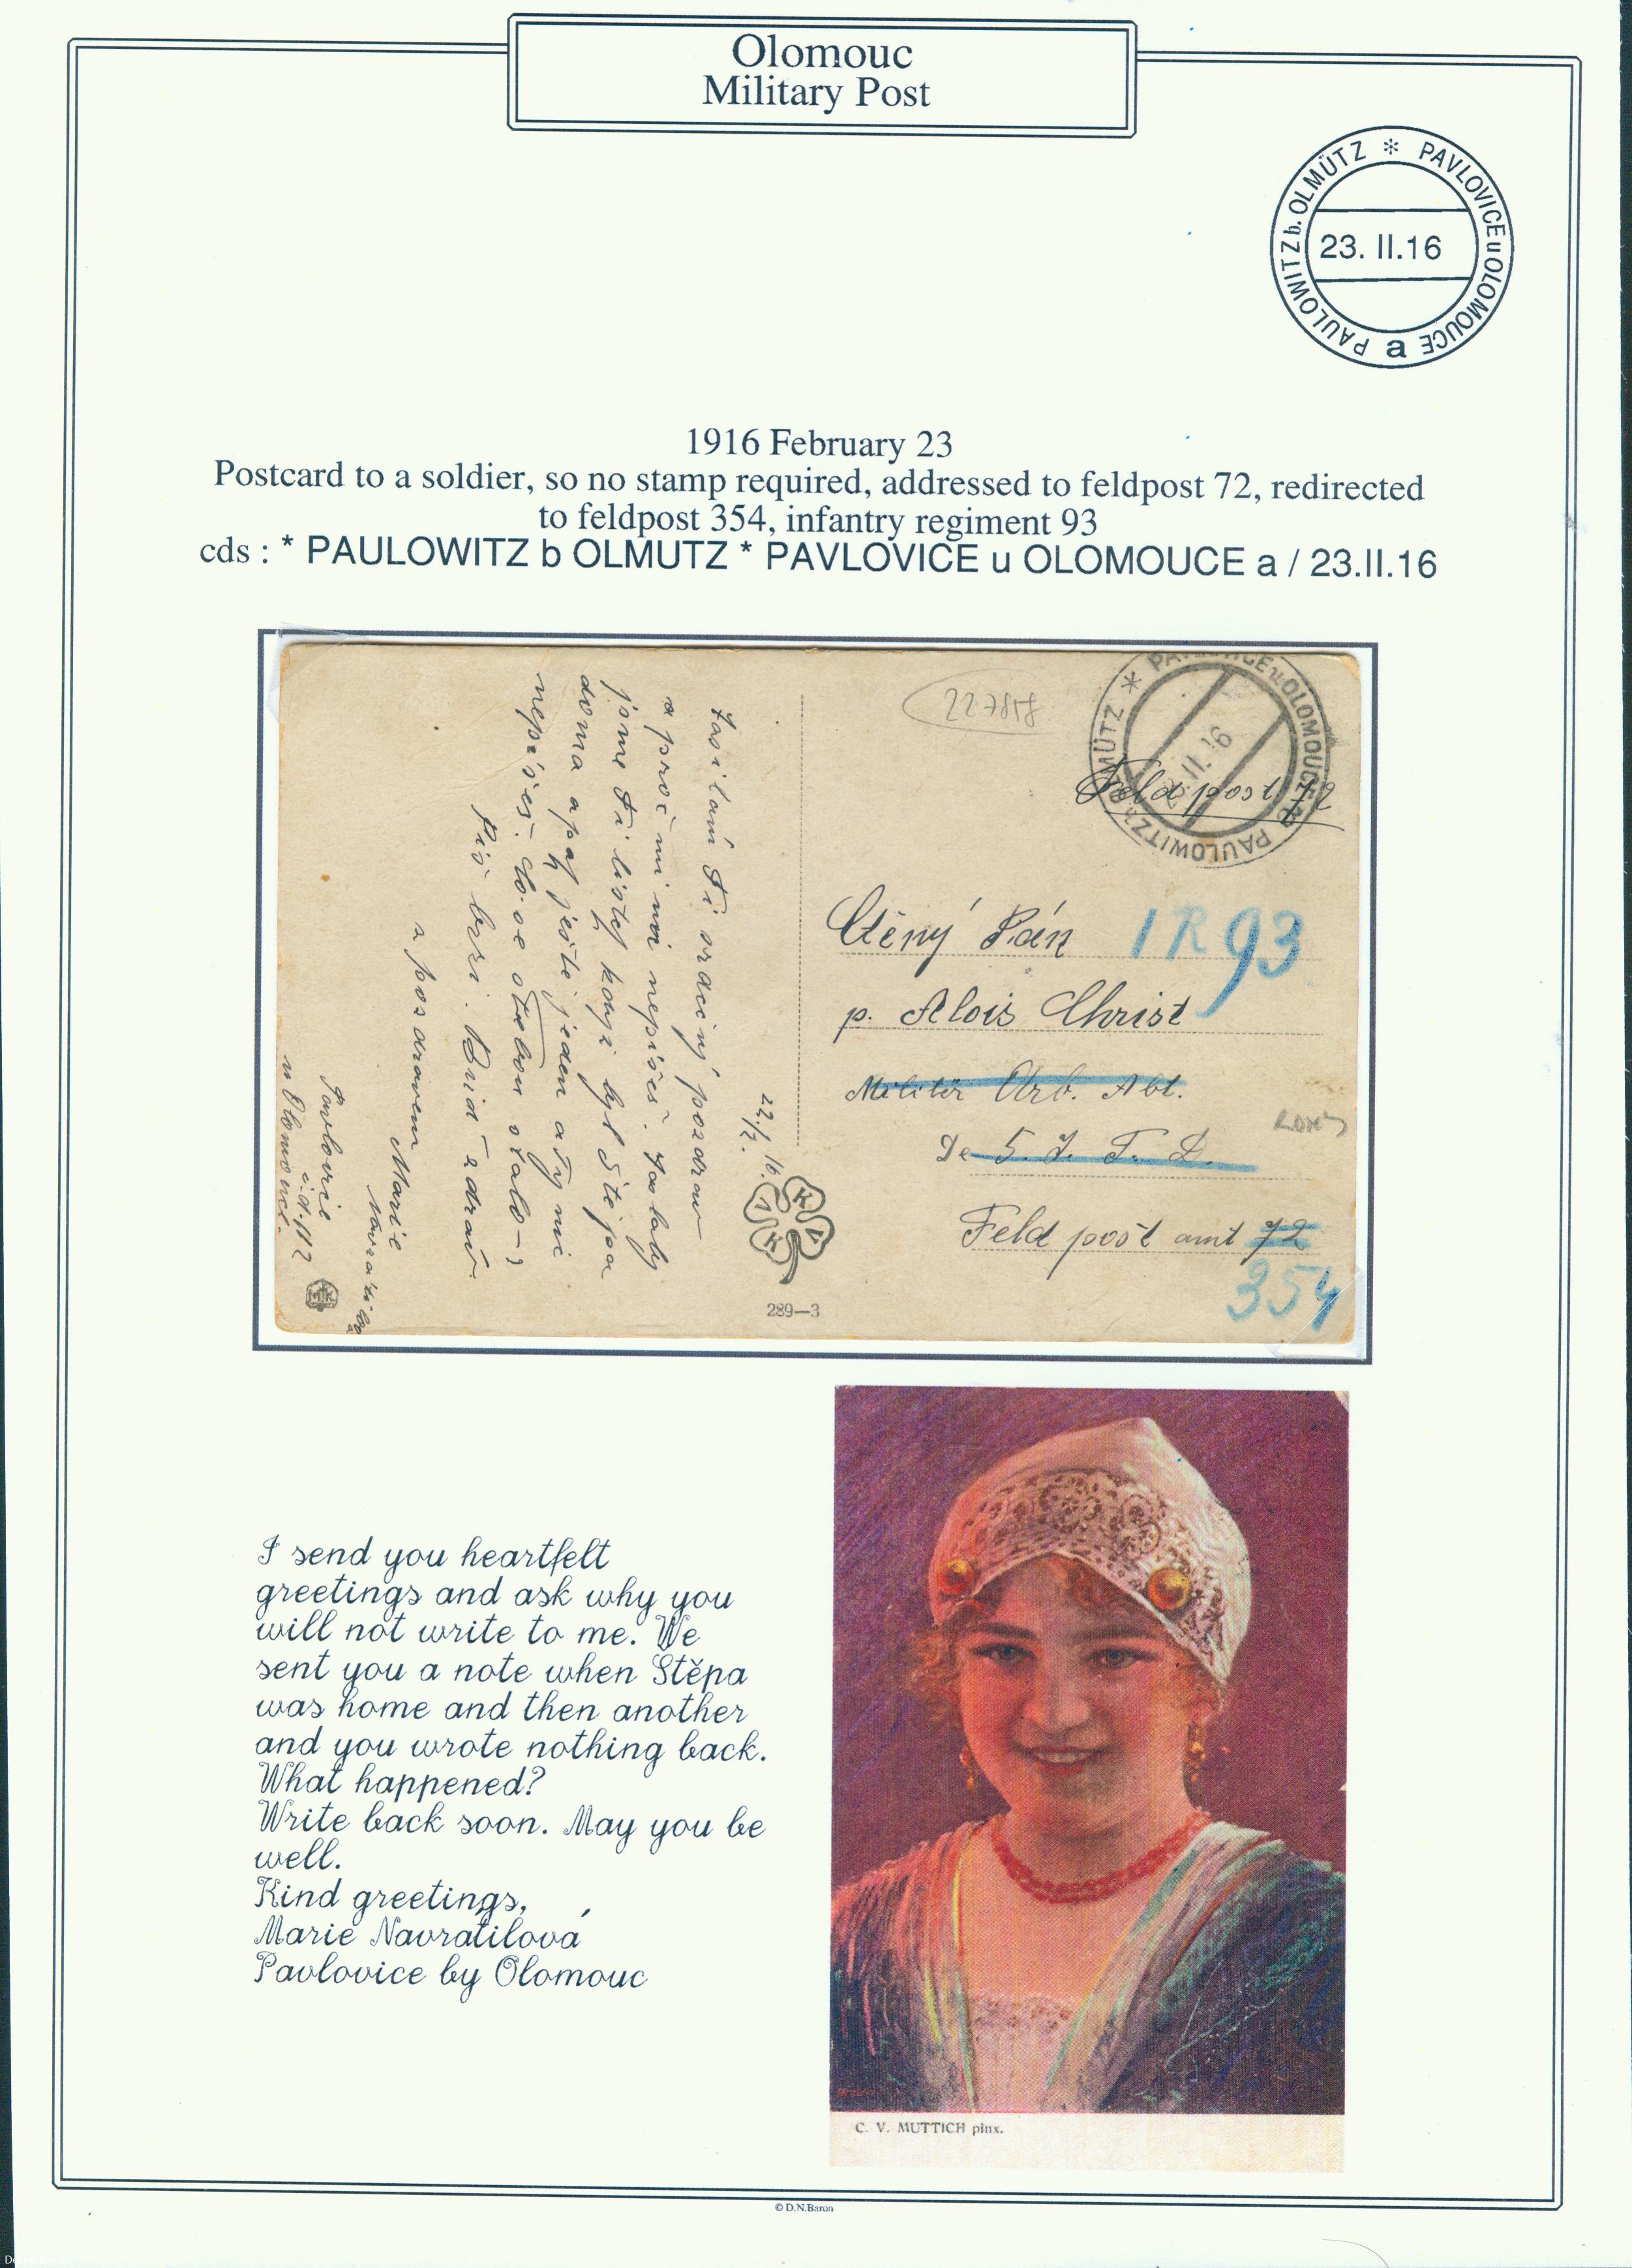 Olomouc
Military Post
PAULOWITZ b. OLMÜTZ * PAVLOVICE u OLOMOUCE a
23. II.16
1916 February 23
Postcard to a soldier, so no stamp required, addressed to feldpost 72, redirected
to feldpost 354, infantry regiment 93
cds : * PAULOWITZ b OLMUTZ * PAVLOVICE u OLOMOUCE a / 23.II.16
227858
Feldpost 72
Ctěný Pán IR 93
p. Alois Christ
Militär Arb. Abt.
5. J. T. D.
Feld post amt 72
354
22./2. 16.
Zasílam Ti srdečný pozdrav
a proč mi nepíšeš.
jsme Ti listek když byl Štěpa
doma a pak ještě jeden a ty nic
nepíšeš co se stalo
Piš brzi. Buď zdráv
s pozdravem Marie
Navrátilová
Pavlovic
č. d. 112
u Olomouce.
KVKV
289—3
I send you heartfelt
greetings and ask why you
will not write to me. We
sent you a note when Stěpa
was home and then another
and you wrote nothing back.
What happened?
Write back soon. May you be
well.
Kind greetings,
Marie Navratilová
Pavlovice by Olomouc
C. V. MUTTICH pinx.
© D.N.Baron